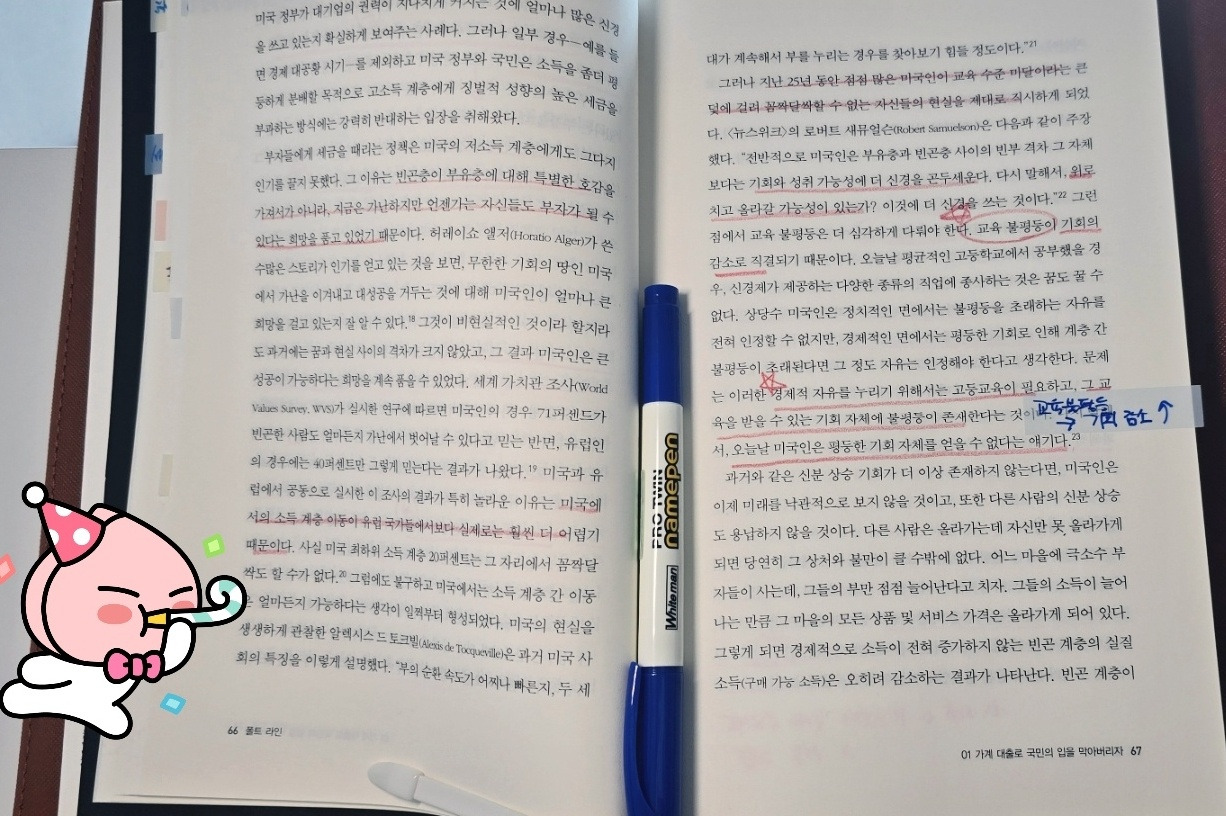 미국 정부가 대기업의 권력이 지나치게 커지는 것에 얼마나 많은 신경
을 쓰고 있는지 확실하게 보여주는 사례다. 그러나 일부 경우—예를 들
면 경제 대공황 시기—를 제외하고 미국 정부와 국민은 소득을 좀더 평
등하게 분배할 목적으로 고소득 계층에게 징벌적 성향의 높은 세금을
부과하는 방식에는 강력히 반대하는 입장을 취해왔다.
부자들에게 세금을 때리는 정책은 미국의 저소득 계층에게도 그다지
인기를 끌지 못했다. 그 이유는 빈곤층이 부유층에 대해 특별한 호감을
가져서가 아니라, 지금은 가난하지만 언젠가는 자신들도 부자가 될 수
있다는 희망을 품고 있었기 때문이다. 허레이쇼 앨저(Horatio Alger)가 쓴
수많은 스토리가 인기를 얻고 있는 것을 보면, 무한한 기회의 땅인 미국
에서 가난을 이겨내고 대성공을 거두는 것에 대해 미국인이 얼마나 큰
희망을 걸고 있는지 잘 알 수 있다.18 그것이 비현실적인 것이라 할지라
도 과거에는 꿈과 현실 사이의 격차가 크지 않았고, 그 결과 미국인은 큰
성공이 가능하다는 희망을 계속 품을 수 있었다. 세계 가치관 조사(World
Values Survey, WVS)가 실시한 연구에 따르면 미국인의 경우 71퍼센트가
빈곤한 사람도 얼마든지 가난에서 벗어날 수 있다고 믿는 반면, 유럽인
의 경우에는 40퍼센트만 그렇게 믿는다는 결과가 나왔다.19 미국과 유
럽에서 공동으로 실시한 이 조사의 결과가 특히 놀라운 이유는 미국에
서의 소득 계층 이동이 유럽 국가들에서보다 실제로는 훨씬 더 어렵기
때문이다. 사실 미국 최하위 소득 계층 20퍼센트는 그 자리에서 꼼짝달
싹도 할 수가 없다.20 그럼에도 불구하고 미국에서는 소득 계층 간 이동
은 얼마든지 가능하다는 생각이 일찍부터 형성되었다. 미국의 현실을
생생하게 관찰한 알렉시스 드 토크빌(Alexis de Tocqueville)은 과거 미국 사
회의 특징을 이렇게 설명했다. “부의 순환 속도가 어찌나 빠른지, 두 세
66 폴트 라인
대가 계속해서 부를 누리는 경우를 찾아보기 힘들 정도이다.”21
그러나 지난 25년 동안 점점 많은 미국인이 교육 수준 미달이라는 큰
덫에 걸려 꼼짝달싹할 수 없는 자신들의 현실을 제대로 직시하게 되었
다. 〈뉴스위크〉의 로버트 새뮤얼슨(Robert Samuelson)은 다음과 같이 주장
했다. “전반적으로 미국인은 부유층과 빈곤층 사이의 빈부 격차 그 자체
보다는 기회와 성취 가능성에 더 신경을 곤두세운다. 다시 말해서, 위로
치고 올라갈 가능성이 있는가? 이것에 더 신경을 쓰는 것이다.”22 그런
점에서 교육 불평등은 더 심각하게 다뤄야 한다. 교육 불평등이 기회의
감소로 직결되기 때문이다. 오늘날 평균적인 고등학교에서 공부했을 경
우, 신경제가 제공하는 다양한 종류의 직업에 종사하는 것은 꿈도 꿀 수
없다. 상당수 미국인은 정치적인 면에서는 불평등을 초래하는 자유를
전혀 인정할 수 없지만, 경제적인 면에서는 평등한 기회로 인해 계층 간
불평등이 초래된다면 그 정도 자유는 인정해야 한다고 생각한다. 문제
는 이러한 경제적 자유를 누리기 위해서는 고등교육이 필요하고, 그 교
육을 받을 수 있는 기회 자체에 불평등이 존재한다는 것이
교육불평등
→ 기회 감소 ↑
서, 오늘날 미국인은 평등한 기회 자체를 얻을 수 없다는 얘기다.23
과거와 같은 신분 상승 기회가 더 이상 존재하지 않는다면, 미국인은
이제 미래를 낙관적으로 보지 않을 것이고, 또한 다른 사람의 신분 상승
도 용납하지 않을 것이다. 다른 사람은 올라가는데 자신만 못 올라가게
되면 당연히 그 상처와 불만이 클 수밖에 없다. 어느 마을에 극소수 부
자들이 사는데, 그들의 부만 점점 늘어난다고 치자. 그들의 소득이 늘어
나는 만큼 그 마을의 모든 상품 및 서비스 가격은 올라가게 되어 있다.
그렇게 되면 경제적으로 소득이 전혀 증가하지 않는 빈곤 계층의 실질
소득(구매 가능 소득)은 오히려 감소하는 결과가 나타난다. 빈곤 계층이
01 가계 대출로 국민의 입을 막아버리자 67
PRO TWIN
namepen
Whiteman